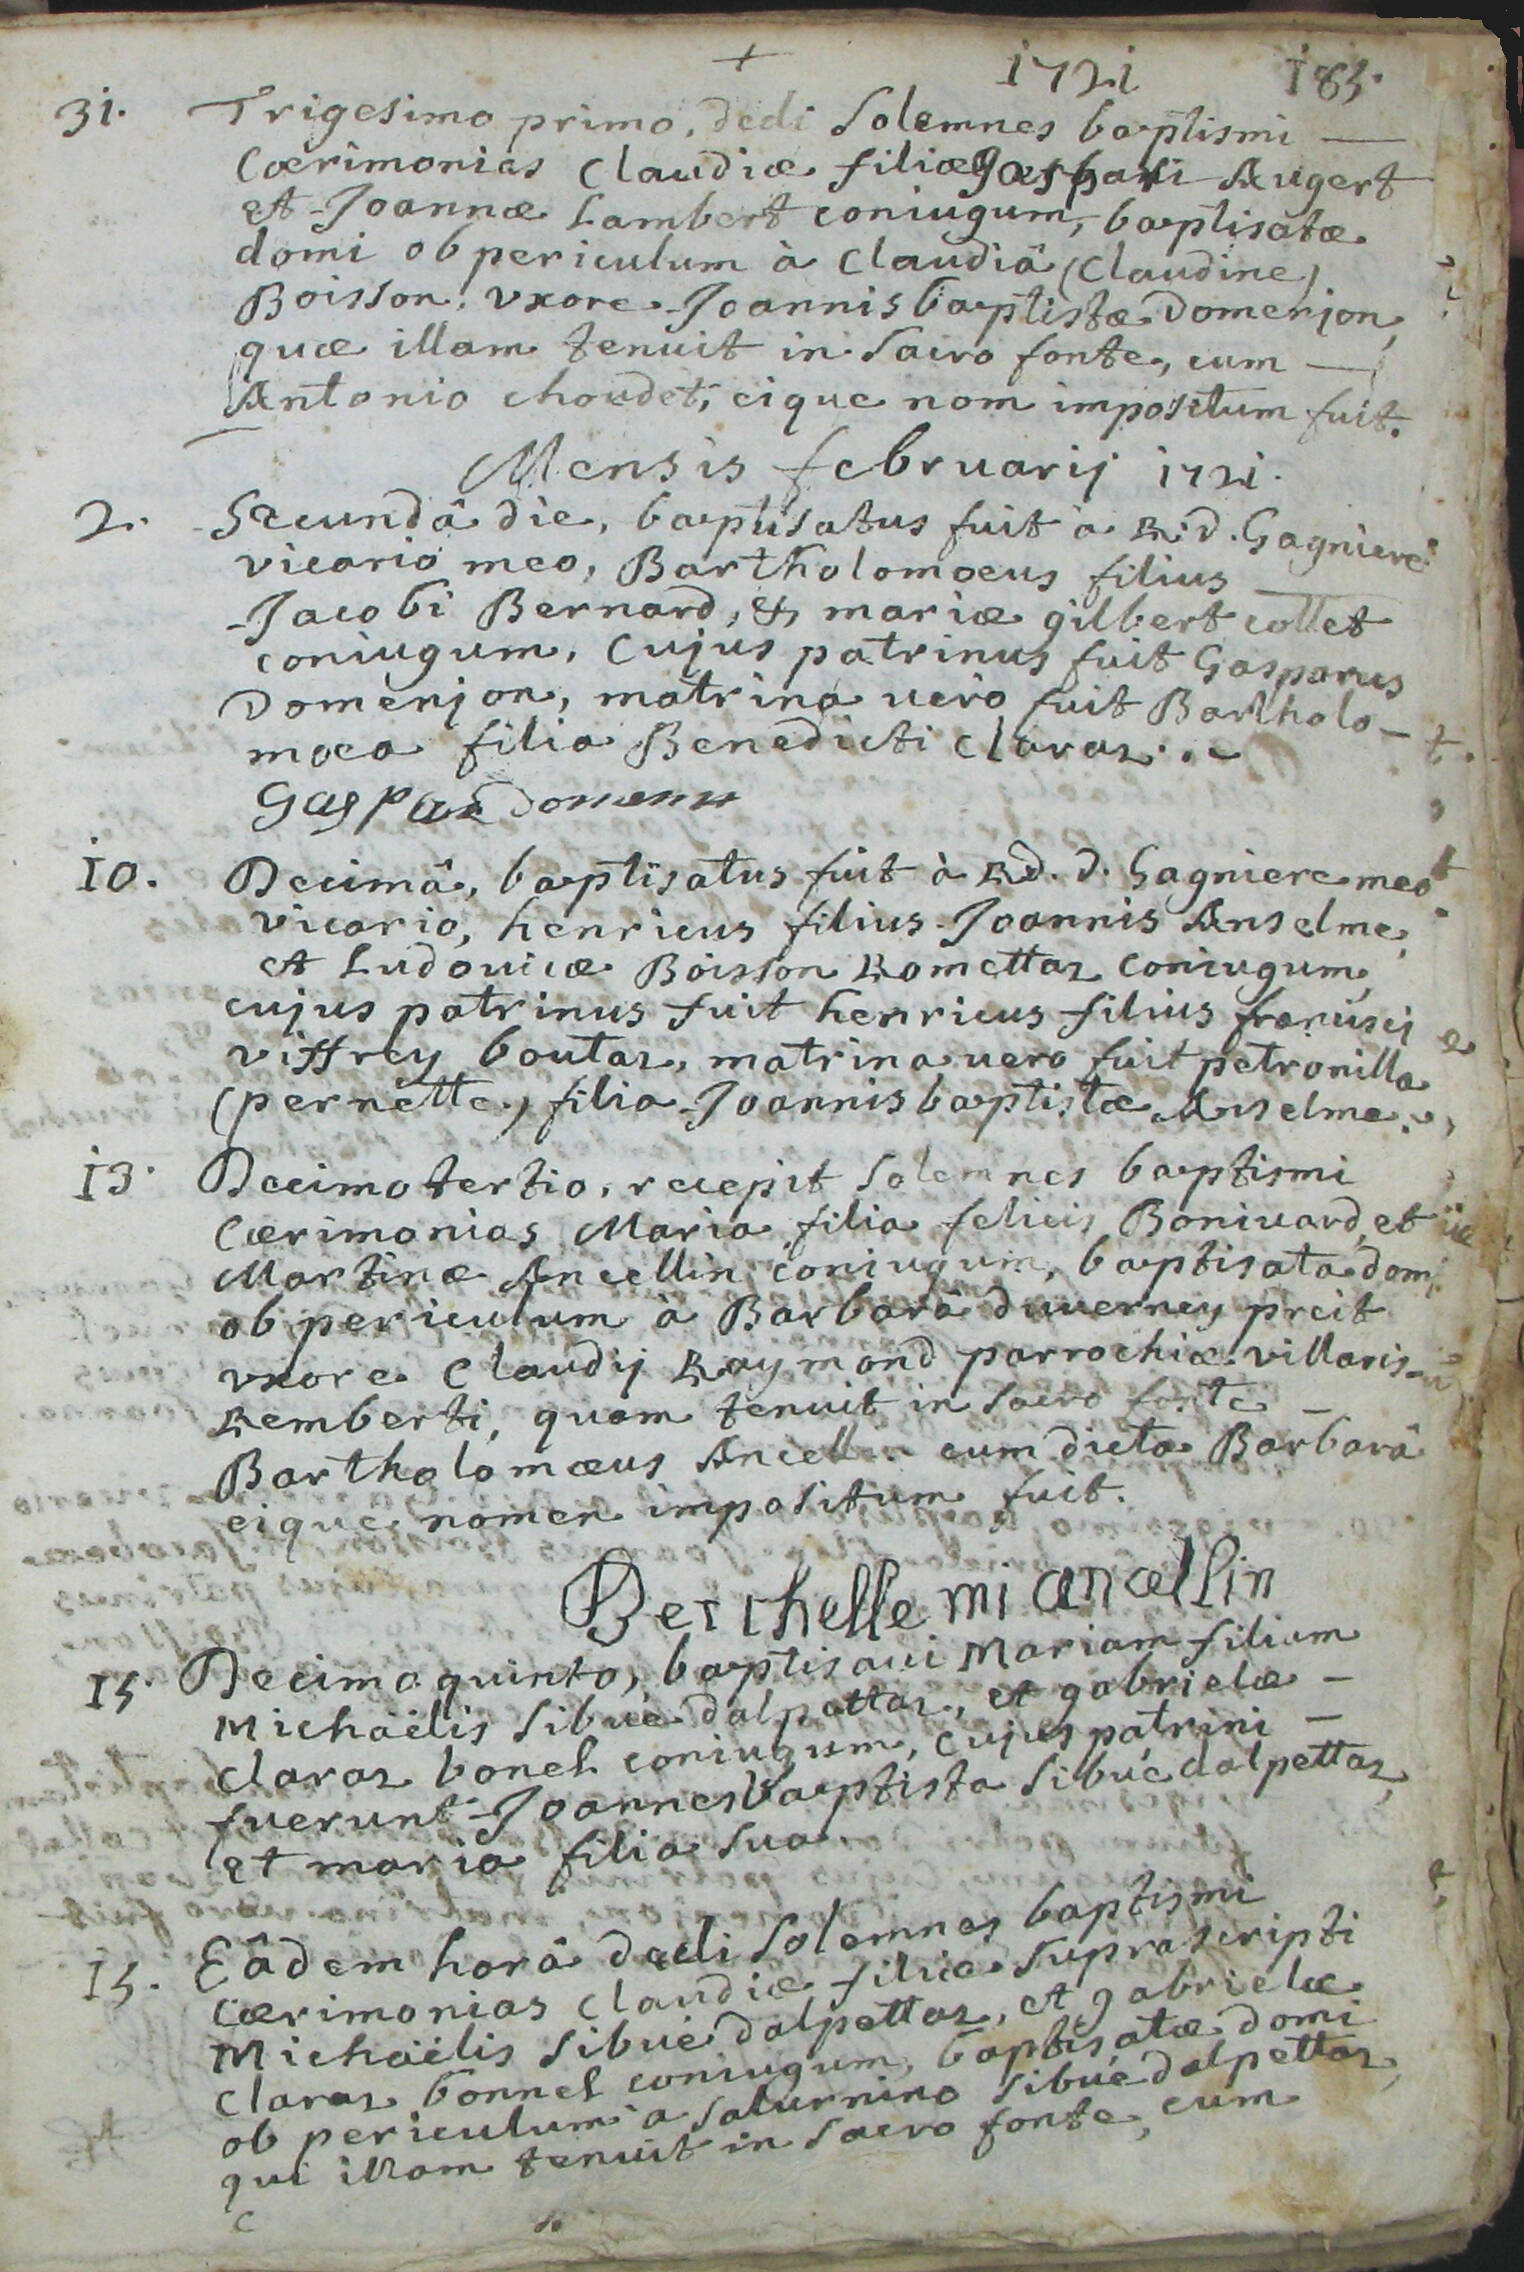 + 1721 185.
31. Trigesimo primo, dedi solemnes baptismi —
Cœrimonias Claudiæ filiæ Gaspari Augert
et Joannæ Lambert coniugum, baptisatæ
domi ob periculum à Claudiâ (Claudine)
Boisson, vxore Joannis baptistæ Domenjon,
quæ illam tenuit in sacro fonte, cum —
Antonio choudet, eique nom impositum fuit.
Mensis februarij 1721.
2. Secundâ die, baptisatus fuit à R. d. Gagniere
vicario meo, Bartholomoeus filius
Jacobi Bernard, & mariæ gilbert collet
coniugum, Cujus patrinus fuit Gasparus
Domenjon, matrina uero fuit Bartholo-
moea filia Benedicti claraz.
Gaspar domenu
10. Decimâ, baptisatus fuit à Rd. d. Gagniere meo
vicario, henricus filius Joannis Anselme,
et Ludouicæ Boisson Romettaz coniugum,
cujus patrinus fuit henricus filius francisci
viffrey boutaz, matrina uero fuit petronilla
(pernette) filia Joannis baptistæ Anselme.
13. Decimo tertio, recepit solemnes baptismi
Cœrimonias Maria filia felicis Boniuard, et
Martinæ Ancellin coniugum, baptisata domi
ob periculum à Barbarâ duuerney preit
vxore Claudij Raymond parrochiæ villaris
Remberti, quam tenuit in sacro fonte —
Bartholomœus Ancellin cum dicta Barbarâ
eique nomen impositum fuit.
Berthelle mi ancellin
15. Decimo quinto, baptisaui Mariam filiam
Michaëlis sibué dalpettaz, et gabrielæ —
claraz bonel coniugum, Cujus patrini —
fuerunt Joannes baptista sibué dalpettaz,
et maria filia sua.
15. Eâdem horâ dedi solemnes baptismi
Cœrimonias Claudiæ filiæ supra scripti
Michaëlis sibué dalpettaz, et gabrielæ
claraz bonnel coniugum, baptisatæ domi
ob periculum à saturnino sibué dalpettaz,
qui illam tenuit in sacro fonte, cum